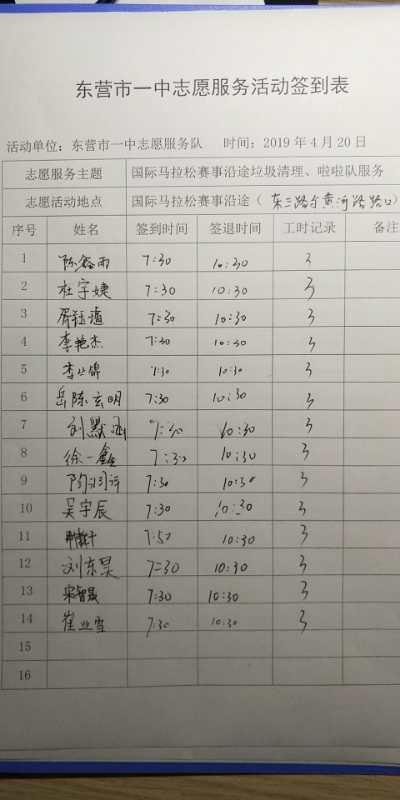 东营市一中志愿服务活动签到表
活动单位：东营市一中志愿服务队 时间：2019 年 4 月 20 日
志愿服务主题 国际马拉松赛事沿途垃圾清理、啦啦队服务
志愿活动地点 国际马拉松赛事沿途（东三路与黄河路路口）
序号 姓名 签到时间 签退时间 工时记录 备注
1 陈鑫雨 7:30 10:30 3
2 杜宇婕 7:30 10:30 3
3 7:30 10:30 3
4 李艳杰 7:30 10:30 3
5 7:30 10:30 3
6 岳陈玄明 7:30 10:30 3
7 刘默涵 7:30 10:30 3
8 徐一鑫 7:30 10:30 3
9 7:30 10:30 3
10 吴宇辰 7:30 10:30 3
11 10:30 3
12 刘东昊 7:30 10:30 3
13 宋智晟 7:30 10:30 3
14 崔业雪 7:30 10:30 3
15
16